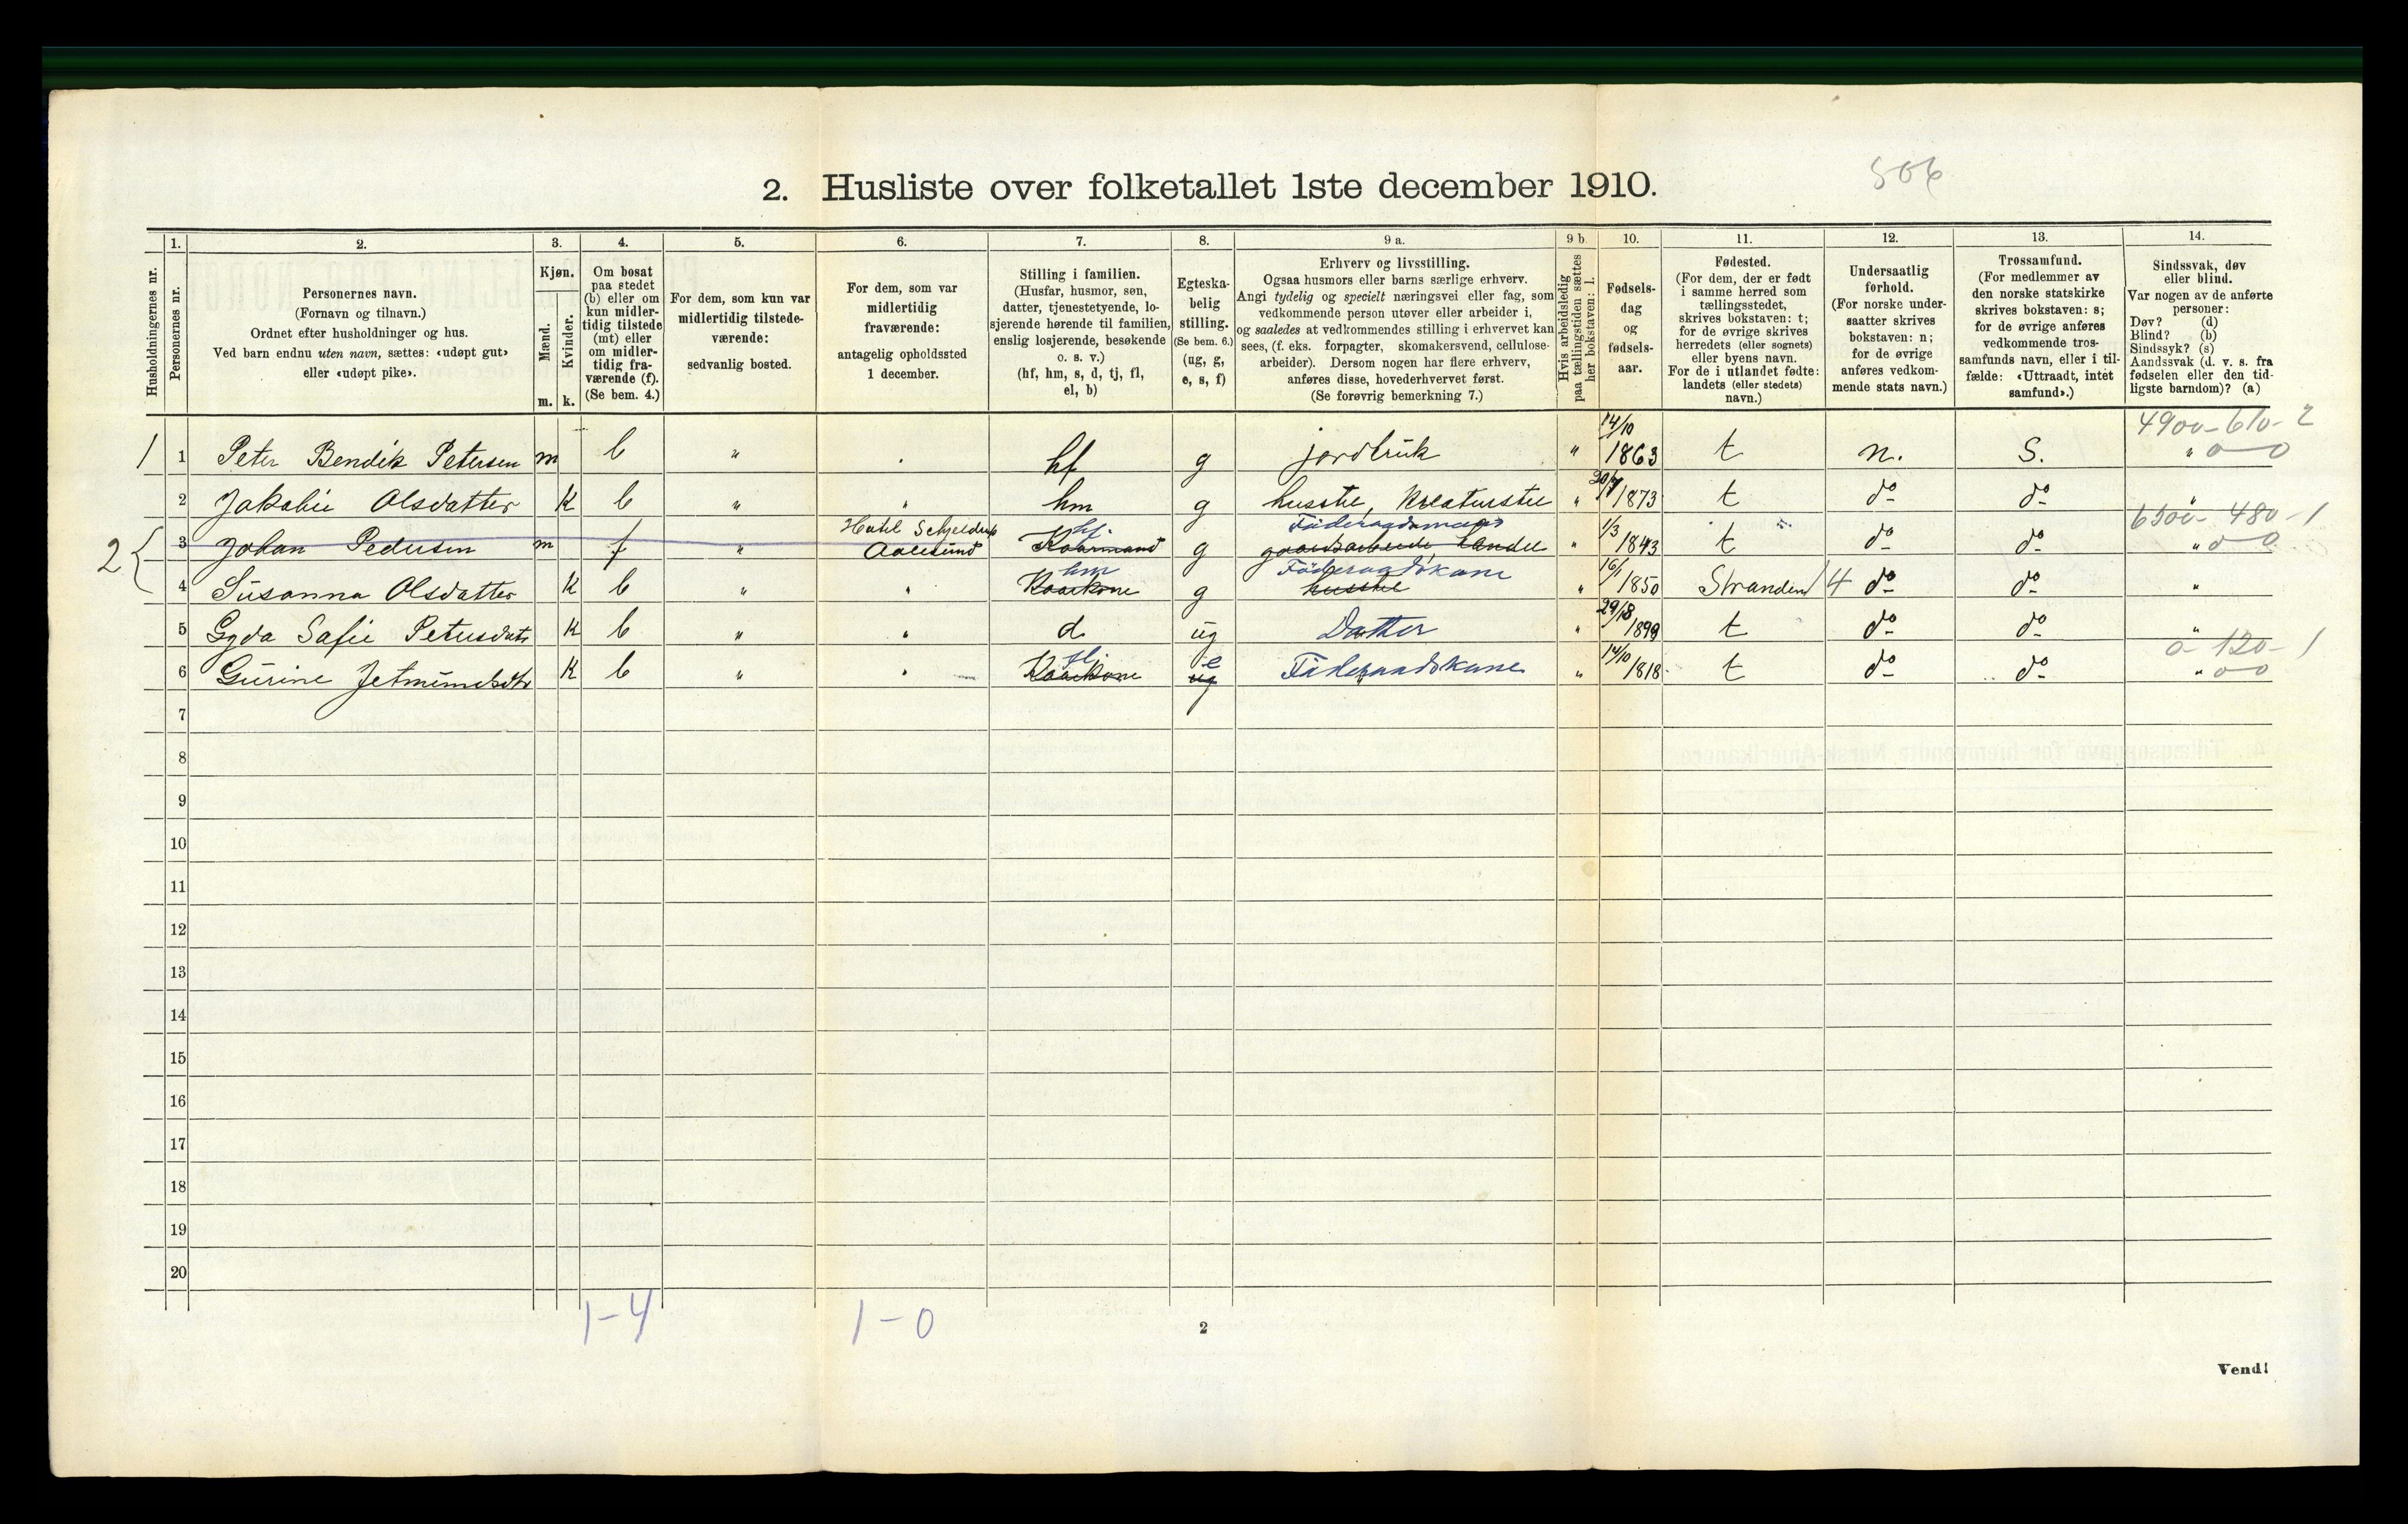 506
2. Husliste over folketallet 1ste december 1910.
Husholdningernes nr.
1. Personernes nr.
2. Personernes navn. (Fornavn og tilnavn.) Ordnet efter husholdninger og hus. Ved barn endnu uten navn, sættes: «udøpt gut» eller «udøpt pike».
3. Kjøn. Mænd. m. Kvinder. k.
4. Om bosat paa stedet (b) eller om kun midlertidig tilstede (mt) eller om midlertidig fraværende (f). (Se bem. 4.)
5. For dem, som kun var midlertidig tilstedeværende: sedvanlig bosted.
6. For dem, som var midlertidig fraværende: antagelig opholdssted 1 december.
7. Stilling i familien. (Husfar, husmor, søn, datter, tjenestetyende, losjerende hørende til familien, enslig losjerende, besøkende o. s. v.) (hf, hm, s, d, tj, fl, el, b)
8. Egteskabelig stilling. (Se bem. 6.) (ug, g, e, s, f)
9 a. Erhverv og livsstilling. Ogsaa husmors eller barns særlige erhverv. Angi tydelig og specielt næringsvei eller fag, som vedkommende person utøver eller arbeider i, og saaledes at vedkommendes stilling i erhvervet kan sees, (f. eks. forpagter, skomakersvend, cellulosearbeider). Dersom nogen har flere erhverv, anføres disse, hovederhvervet først. (Se forøvrig bemerkning 7.)
9 b. Hvis arbeidsledig paa tællingstiden sættes her bokstaven: l.
10. Fødselsdag og fødselsaar.
11. Fødested. (For dem, der er født i samme herred som tællingsstedet, skrives bokstaven: t; for de øvrige skrives herredets (eller sognets) eller byens navn. For de i utlandet fødte: landets (eller stedets) navn.)
12. Undersaatlig forhold. (For norske undersaatter skrives bokstaven: n; for de øvrige anføres vedkommende stats navn.)
13. Trossamfund. (For medlemmer av den norske statskirke skrives bokstaven: s; for de øvrige anføres vedkommende trossamfunds navn, eller i tilfælde: «Uttraadt, intet samfund».)
14. Sindssvak, døv eller blind. Var nogen av de anførte personer: Døv? (d) Blind? (b) Sindssyk? (s) Aandssvak (d. v. s. fra fødselen eller den tidligste barndom)? (a)
4900-610-2
1 1 Peter Bendik Petersen m b " hf g jordbruk " 14/10 1863 t n. S. " 0-0
2 Jakobie Olsdatter K b " " hm g husstel, Kreaturstel " 1873 t do do "
6500-480-1
2 { 3 Johan Pedersen m f " Hotel Schjeldrup Aalesund Kaarmand hf. g gaardsarbeide handel Föderaadsmand " 1/3 1843 t do do " 0 0
4 Susanna Olsdatter K b " " Kaarkone hm g husstel Föderaadskone " 16/1 1850 Stranden 4 do do "
5 Gyda Safie Petersdatr K b " " d ug Datter " 29/8 1899 t do do "
0-120-1
6 Gurine Jetmundsdtr K b " " Kaarkone fl. ug e Föderaadskone " 14/10 1818 t do do " 0 0
7
8
9
10
11
12
13
14
15
16
17
18
19
20
1-4 1-0
2
Vend!